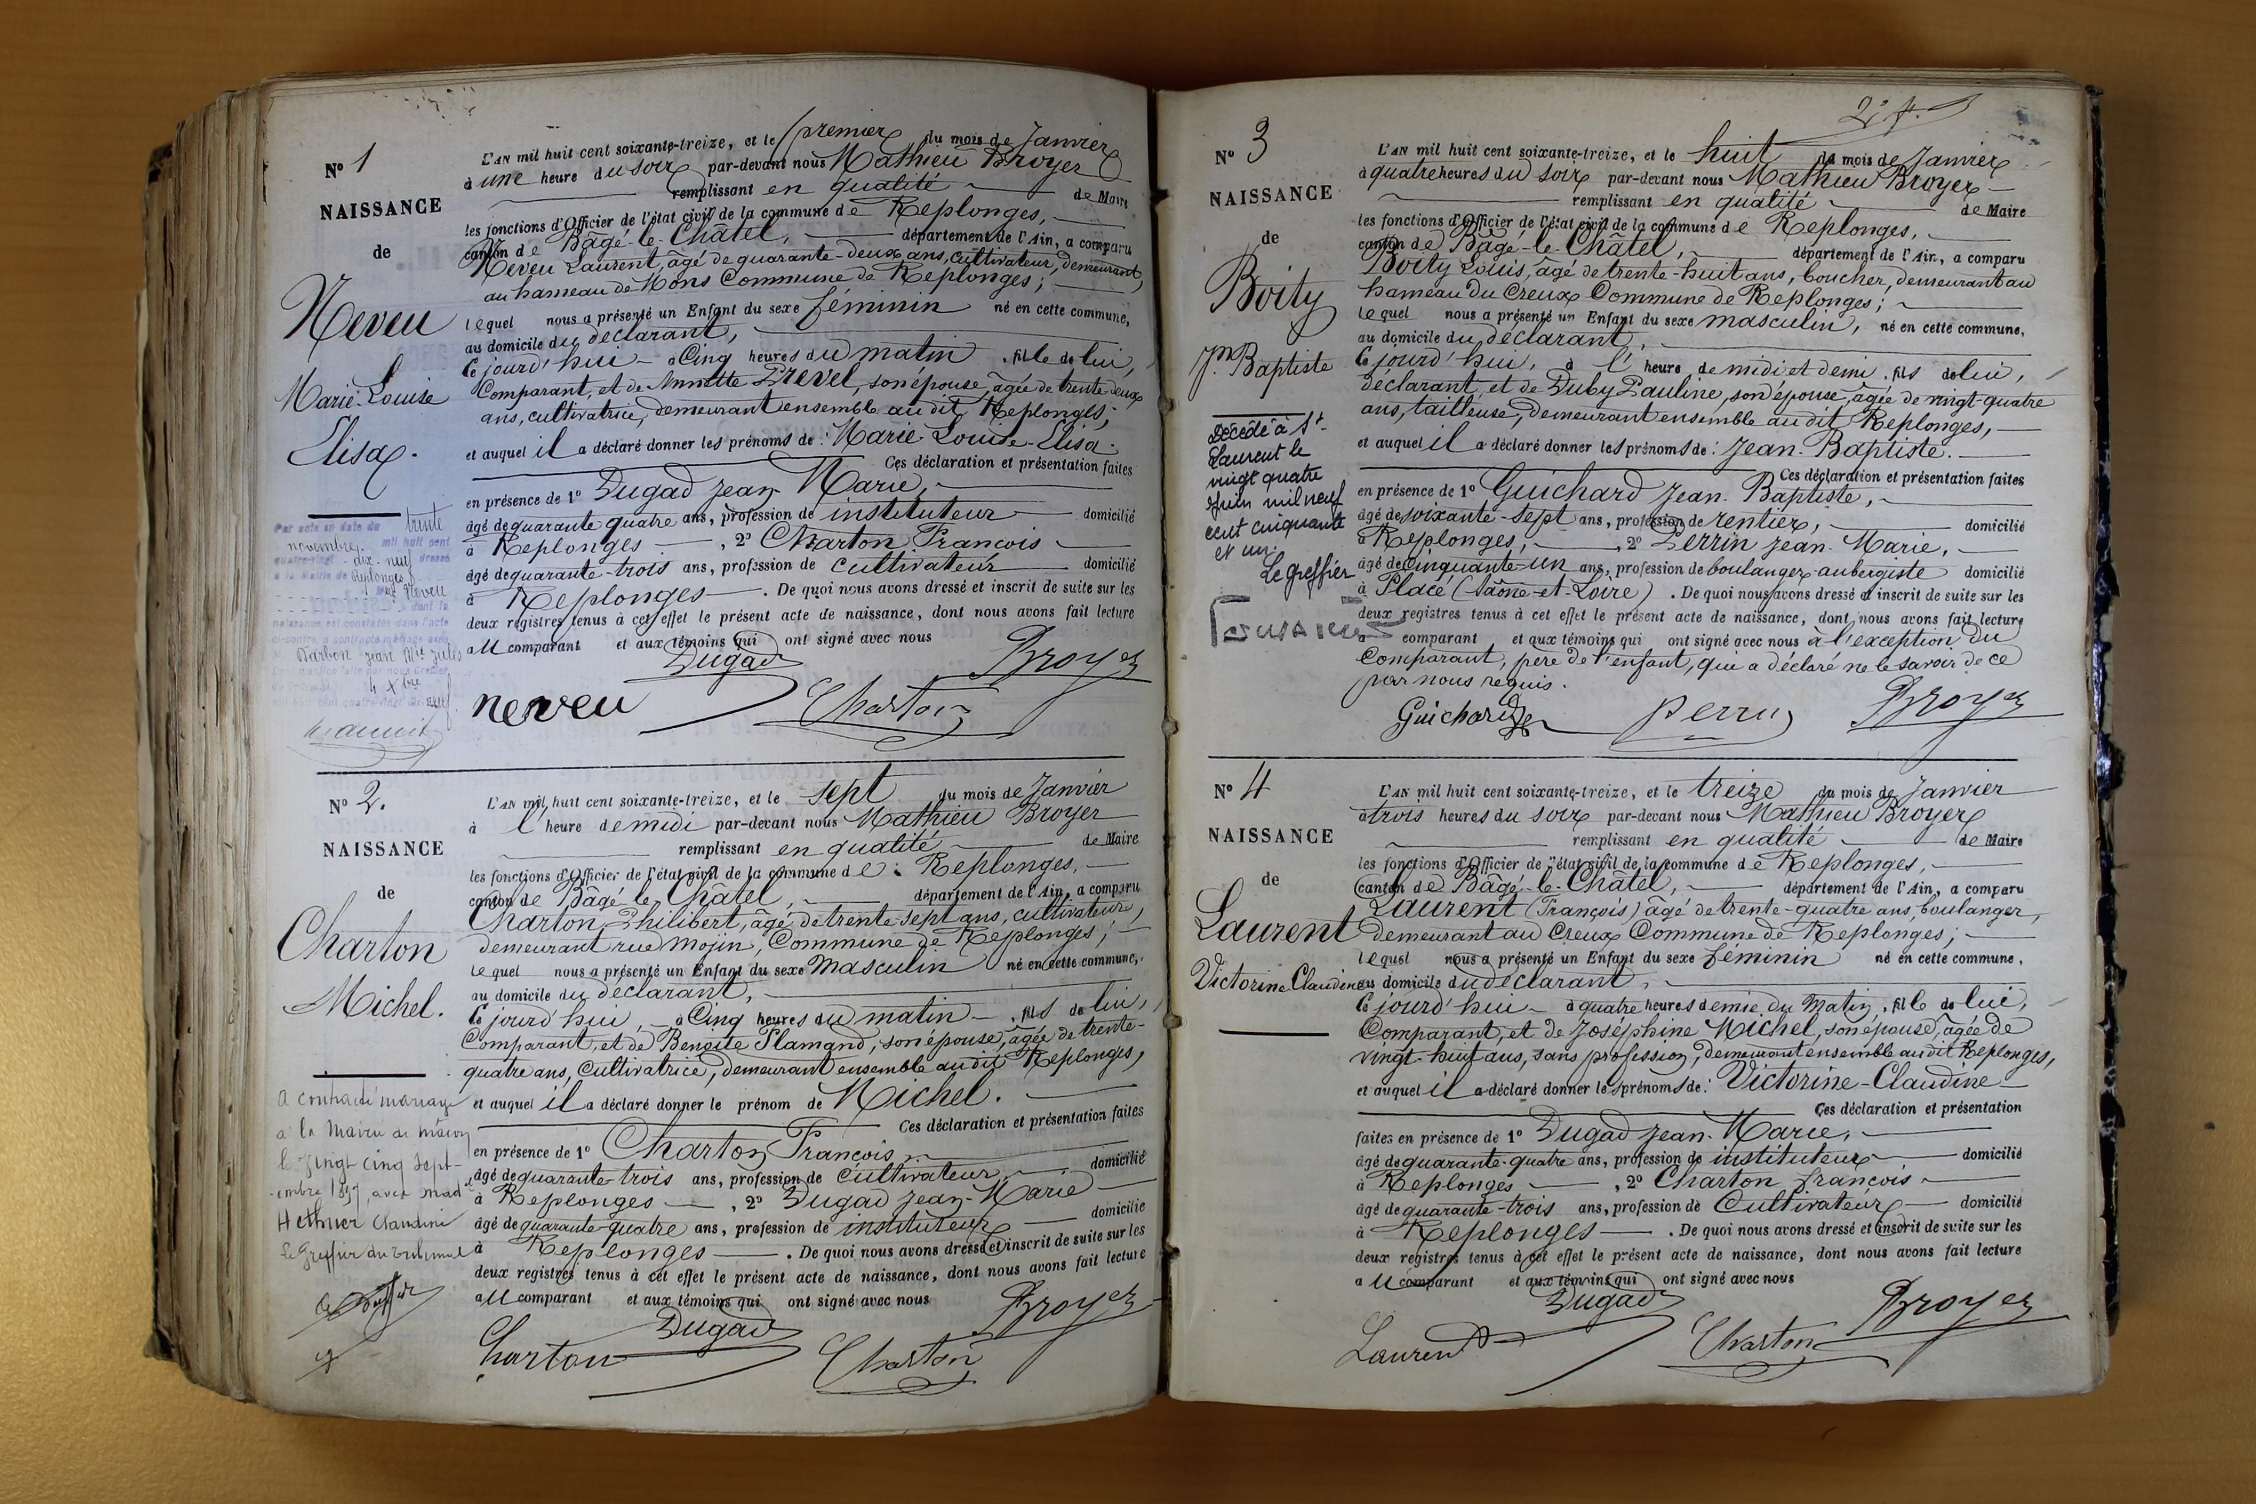 N° 1
NAISSANCE
de
Neveu
Marie-Louise
Elisa.
Par acte en date du trente
novembre mil huit cent
quatre-vingt-dix-neuf dressé
à la Mairie de Replonges,
Neveu
dont la
naissance est constatée dans l'acte
ci-contre, a contracté mariage avec
Darbon Jean Mie Jules
4 Xbre
L'AN mil huit cent soixante-treize, et le premier du mois de Janvier
à une heure du soir par-devant nous Mathieu Broyer
remplissant en qualité de Maire
les fonctions d'Officier de l'état civil de la commune de Replonges,
canton de Bâgé-le-Châtel, département de l'Ain, a comparu
Neveu Laurent, âgé de quarante-deux ans, cultivateur, demeurant
au hameau de Mons Commune de Replonges;
lequel nous a présenté un Enfant du sexe féminin né en cette commune,
au domicile du déclarant,
Ce jourd'hui à Cinq heures du matin, fille de lui,
Comparant, et de Annette Prevel, son épouse, âgée de trente-deux
ans, cultivatrice, demeurant ensemble audit Replonges;
et auquel il a déclaré donner les prénoms de: Marie-Louise-Elisa.
Ces déclaration et présentation faites
en présence de 1° Dugad Jean-Marie,
âgé de quarante-quatre ans, profession de instituteur domicilié
à Replonges, 2° Charton François
âgé de quarante-trois ans, profession de cultivateur domicilié
à Replonges. De quoi nous avons dressé et inscrit de suite sur les
deux registres tenus à cet effet le présent acte de naissance, dont nous avons fait lecture
au comparant et aux témoins qui ont signé avec nous
Dugad Broyer
neveu Charton
N° 2.
NAISSANCE
de
Charton
Michel.
a contracté mariage
à la Mairie de Mâcon
le vingt cinq sept-
embre 1897, avec Mad
Hethuer Claudine
Le Greffier du tribunal
L'AN mil huit cent soixante-treize, et le sept du mois de Janvier
à l'heure de midi par-devant nous Mathieu Broyer
remplissant en qualité de Maire
les fonctions d'Officier de l'état civil de la commune de: Replonges,
canton de Bâgé-le-Châtel, département de l'Ain, a comparu
Charton Philibert, âgé de trente-sept ans, cultivateur,
demeurant rue Mojin, Commune de Replonges;
lequel nous a présenté un Enfant du sexe Masculin né en cette commune,
au domicile du déclarant,
Ce jourd'hui, à Cinq heures du matin, fils de lui,
Comparant, et de Benoite Flamand, son épouse, âgée de trente-
quatre ans, Cultivatrice, demeurant ensemble audit Replonges,
et auquel il a déclaré donner le prénom de Michel.
Ces déclaration et présentation faites
en présence de 1° Charton François,
âgé de quarante-trois ans, profession de cultivateur, domicilié
à Replonges, 2° Dugad Jean-Marie
âgé de quarante-quatre ans, profession de instituteur domicilié
à Replonges. De quoi nous avons dressé et inscrit de suite sur les
deux registres tenus à cet effet le présent acte de naissance, dont nous avons fait lecture
au comparant et aux témoins qui ont signé avec nous
Dugad Broyer
Charton Charton
N° 3
NAISSANCE
de
Boity
Jn Baptiste
Décédé à St-
Laurent le
vingt quatre
Juin mil neuf
cent cinquante
et un.
Le greffier
L'AN mil huit cent soixante-treize, et le huit du mois de Janvier
à quatre heures du soir par-devant nous Mathieu Broyer
remplissant en qualité de Maire
les fonctions d'Officier de l'état civil de la commune de Replonges,
canton de Bâgé-le-Châtel, département de l'Ain, a comparu
Boity Louis, âgé de trente-huit ans, boucher, demeurant au
hameau du Creux Commune de Replonges;
lequel nous a présenté un Enfant du sexe masculin, né en cette commune,
au domicile du déclarant,
Ce jourd'hui, à l'heure de midi et demi, fils de lui,
déclarant, et de Duby Pauline, son épouse, âgée de vingt-quatre
ans, tailleuse, demeurant ensemble audit Replonges,
et auquel il a déclaré donner les prénoms de: Jean-Baptiste.
Ces déclaration et présentation faites
en présence de 1° Guichard Jean-Baptiste,
âgé de soixante-sept ans, profession de rentier, domicilié
à Replonges, 2° Perrin Jean-Marie,
âgé de Cinquante-un ans, profession de boulanger-aubergiste domicilié
à Placé (Saône-et-Loire). De quoi nous avons dressé et inscrit de suite sur les
deux registres tenus à cet effet le présent acte de naissance, dont nous avons fait lecture
au comparant et aux témoins qui ont signé avec nous à l'exception du
Comparant, père de l'enfant, qui a déclaré ne le savoir de ce
par nous requis.
Guichard Perrin Broyer
N° 4
NAISSANCE
de
Laurent
Victorine Claudine
L'AN mil huit cent soixante-treize, et le treize du mois de Janvier
à trois heures du soir par-devant nous Mathieu Broyer
remplissant en qualité de Maire
les fonctions d'Officier de l'état civil de la commune de Replonges,
canton de Bâgé-le-Châtel, département de l'Ain, a comparu
Laurent (François) âgé de trente-quatre ans, boulanger,
demeurant au Creux Commune de Replonges;
lequel nous a présenté un Enfant du sexe féminin né en cette commune,
au domicile du déclarant,
Ce jourd'hui à quatre heures demie du Matin, fille de lui,
Comparant, et de Joséphine Michel, son épouse, âgée de
vingt-huit ans, sans profession, demeurant ensemble audit Replonges,
et auquel il a déclaré donner les prénoms de: Victorine-Claudine
Ces déclaration et présentation
faites en présence de 1° Dugad Jean-Marie,
âgé de quarante-quatre ans, profession de instituteur domicilié
à Replonges, 2° Charton François
âgé de quarante-trois ans, profession de Cultivateur domicilié
à Replonges. De quoi nous avons dressé et inscrit de suite sur les
deux registres tenus à cet effet le présent acte de naissance, dont nous avons fait lecture
au comparant et aux témoins qui ont signé avec nous
Dugad Broyer
Laurent Charton